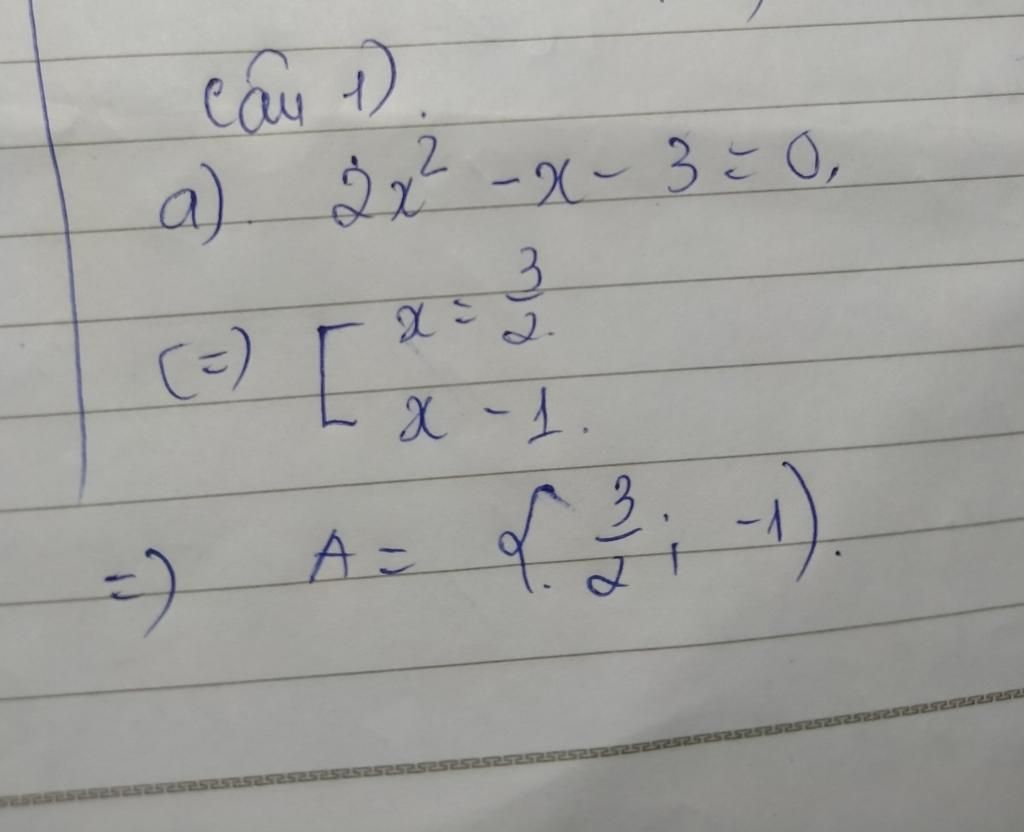 Câu 1).
a). 2x² - x - 3 = 0.
(=) [ x = 3/2.
x - 1.
=) A = { 3/2 ; -1 ).